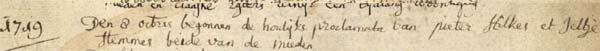 1749 Den 8 octris begonnen de houlijks proclamatis van pieter Hilkes et Jeltje
Hemmes beide van de mieden